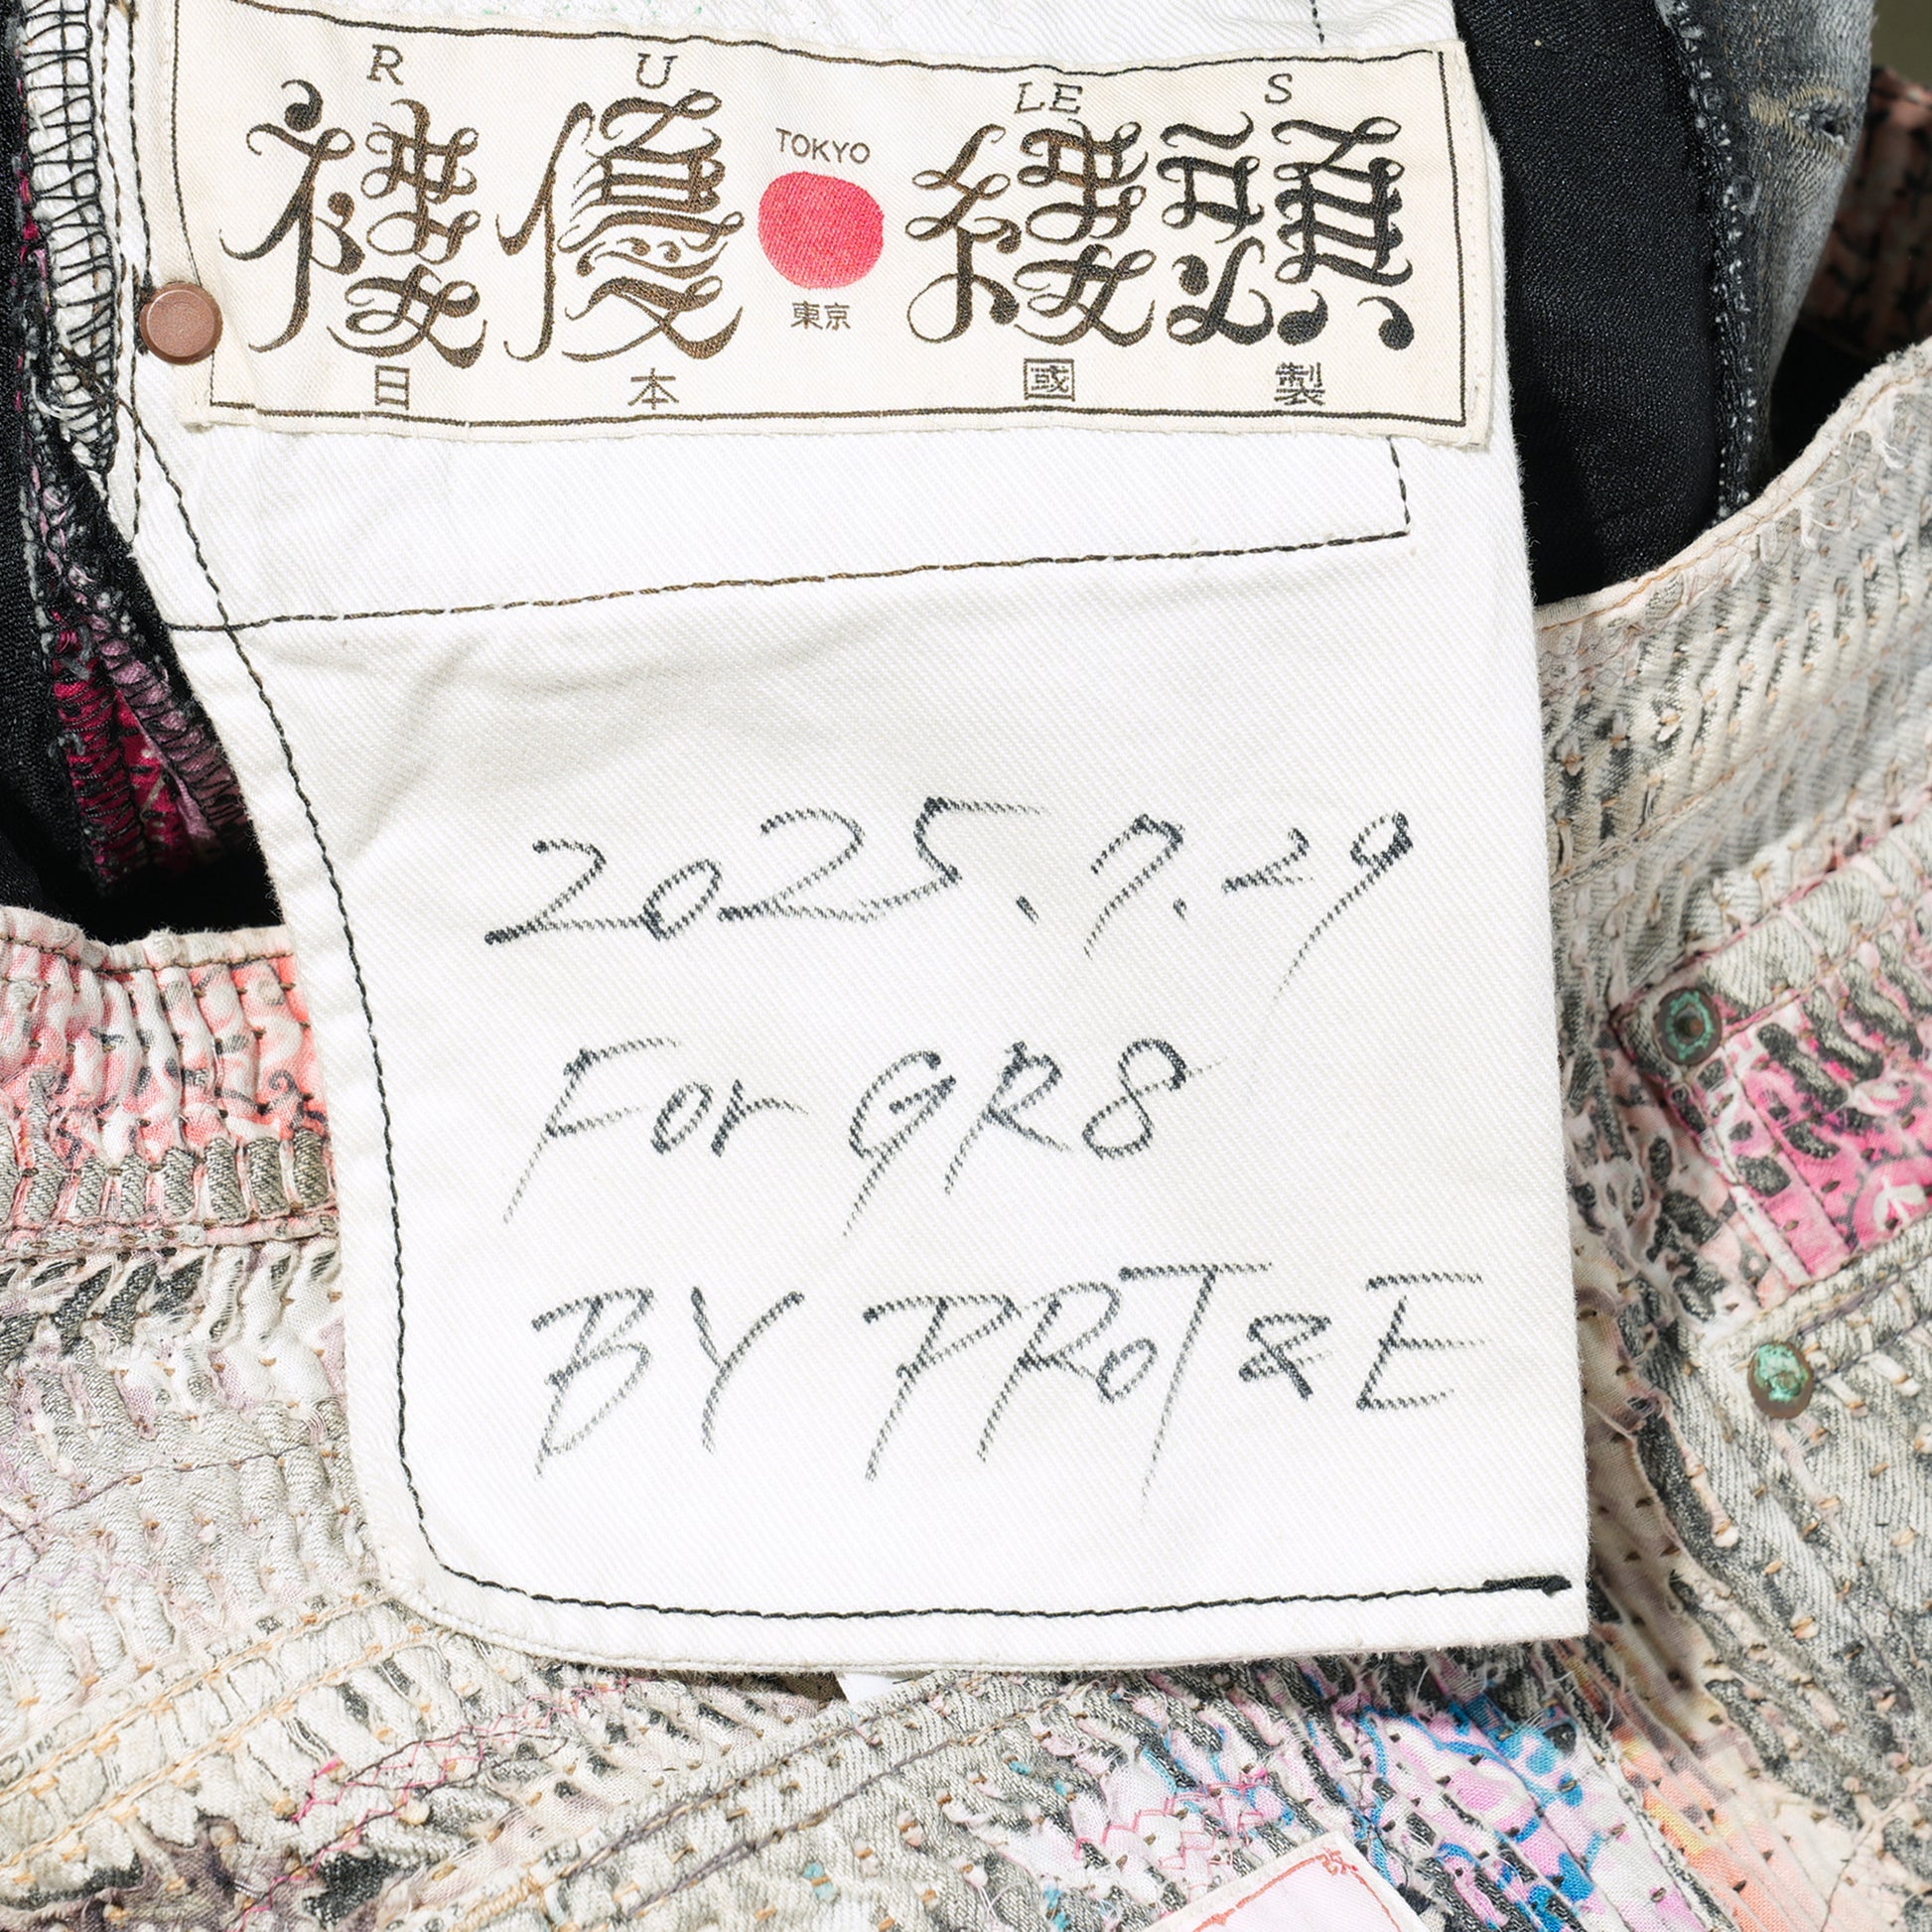 R U LE S
TOKYO
褸優縷頭
東京
日本國製
2025.7.29
For GR8
BY PROT&E